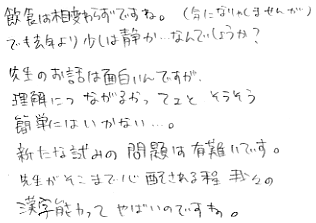 飲食は相変わらずですね。(気になりゃしませんが)
でも去年より少しは静か…なんでしょうか?
先生のお話は面白いんですが、
理解につながるかってユとそうそう
簡単にはいかない…。
新たな試みの問題は有難いです。
先生がそこまで心配される程我々の
漢字能力ってやばいのですね。